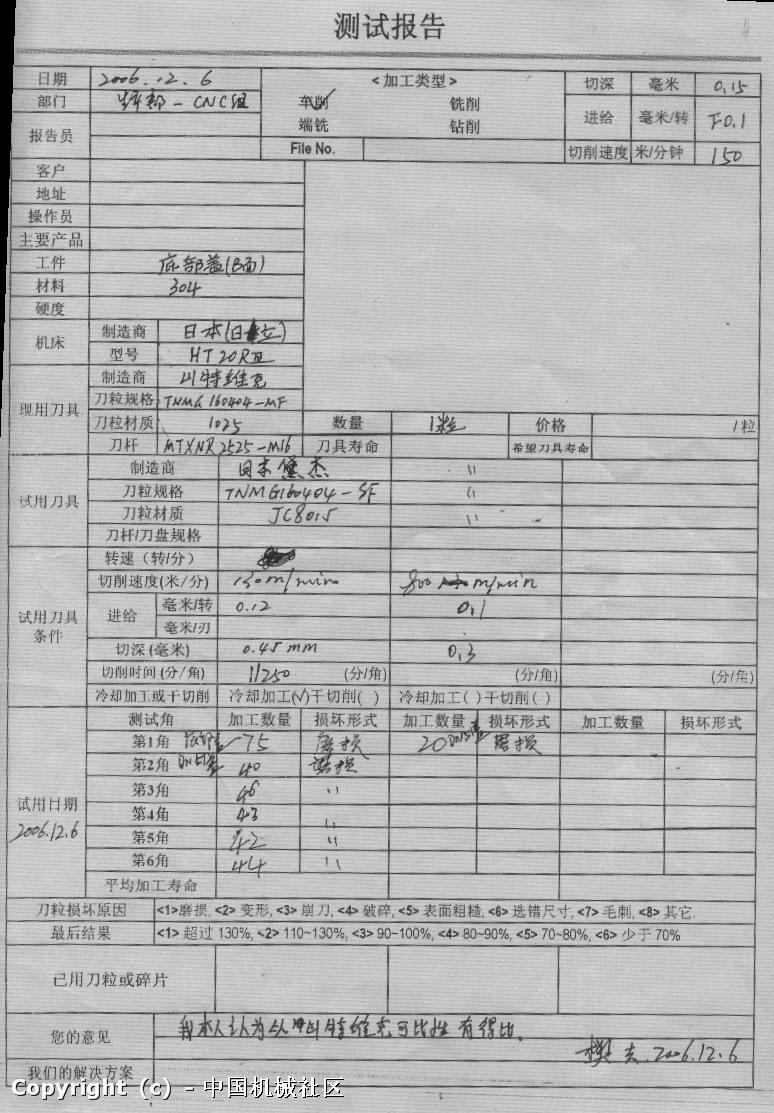 测试报告
日期 2006.12.6 <加工类型> 切深 毫米 0.15
部门 - CNC组 车削 铣削 进给 毫米/转 F0.1
报告员 端铣 钻削
File No. 切削速度 米/分钟 150
客户
地址
操作员
主要产品
工件 底部盖(B面)
材料 304
硬度
机床 制造商 日本(日立)
型号 HT20RⅡ
现用刀具 制造商 山特维克
刀粒规格 TNMG 160404-MF
刀粒材质 1025 数量 1粒 价格 1粒
刀杆 MTXNR 2525-M16 刀具寿命 希望刀具寿命
试用刀具 制造商 日本黛杰 〃
刀粒规格 TNMG160404-SF 〃
刀粒材质 JC8015 〃
刀杆/刀盘规格
试用刀具条件 转速(转/分)
切削速度(米/分) 130m/min 800 m/min
进给 毫米/转 0.12 0.1
毫米/刃
切深(毫米) 0.45mm 0.3
切削时间(分/角) 11250 (分/角) (分/角) (分/角)
冷却加工或干切削 冷却加工(√)干切削( ) 冷却加工( )干切削( )
试用日期 2006.12.6 测试角 加工数量 损坏形式 加工数量 损坏形式 加工数量 损坏形式
第1角 75 磨损 20 磨损
第2角 40 磨损
第3角 46 〃
第4角 43 〃
第5角 42 〃
第6角 44 〃
平均加工寿命
刀粒损坏原因 <1>磨损, <2> 变形, <3> 崩刀, <4> 破碎, <5> 表面粗糙, <6> 选错尺寸, <7> 毛刺, <8> 其它.
最后结果 <1> 超过 130%, <2> 110~130%, <3> 90~100%, <4> 80~90%, <5> 70~80%, <6> 少于 70%
已用刀粒或碎片
您的意见 我本人认为 山特维克可比性有得比。
2006.12.6
我们的解决方案
Copyright (c) - 中国机械社区